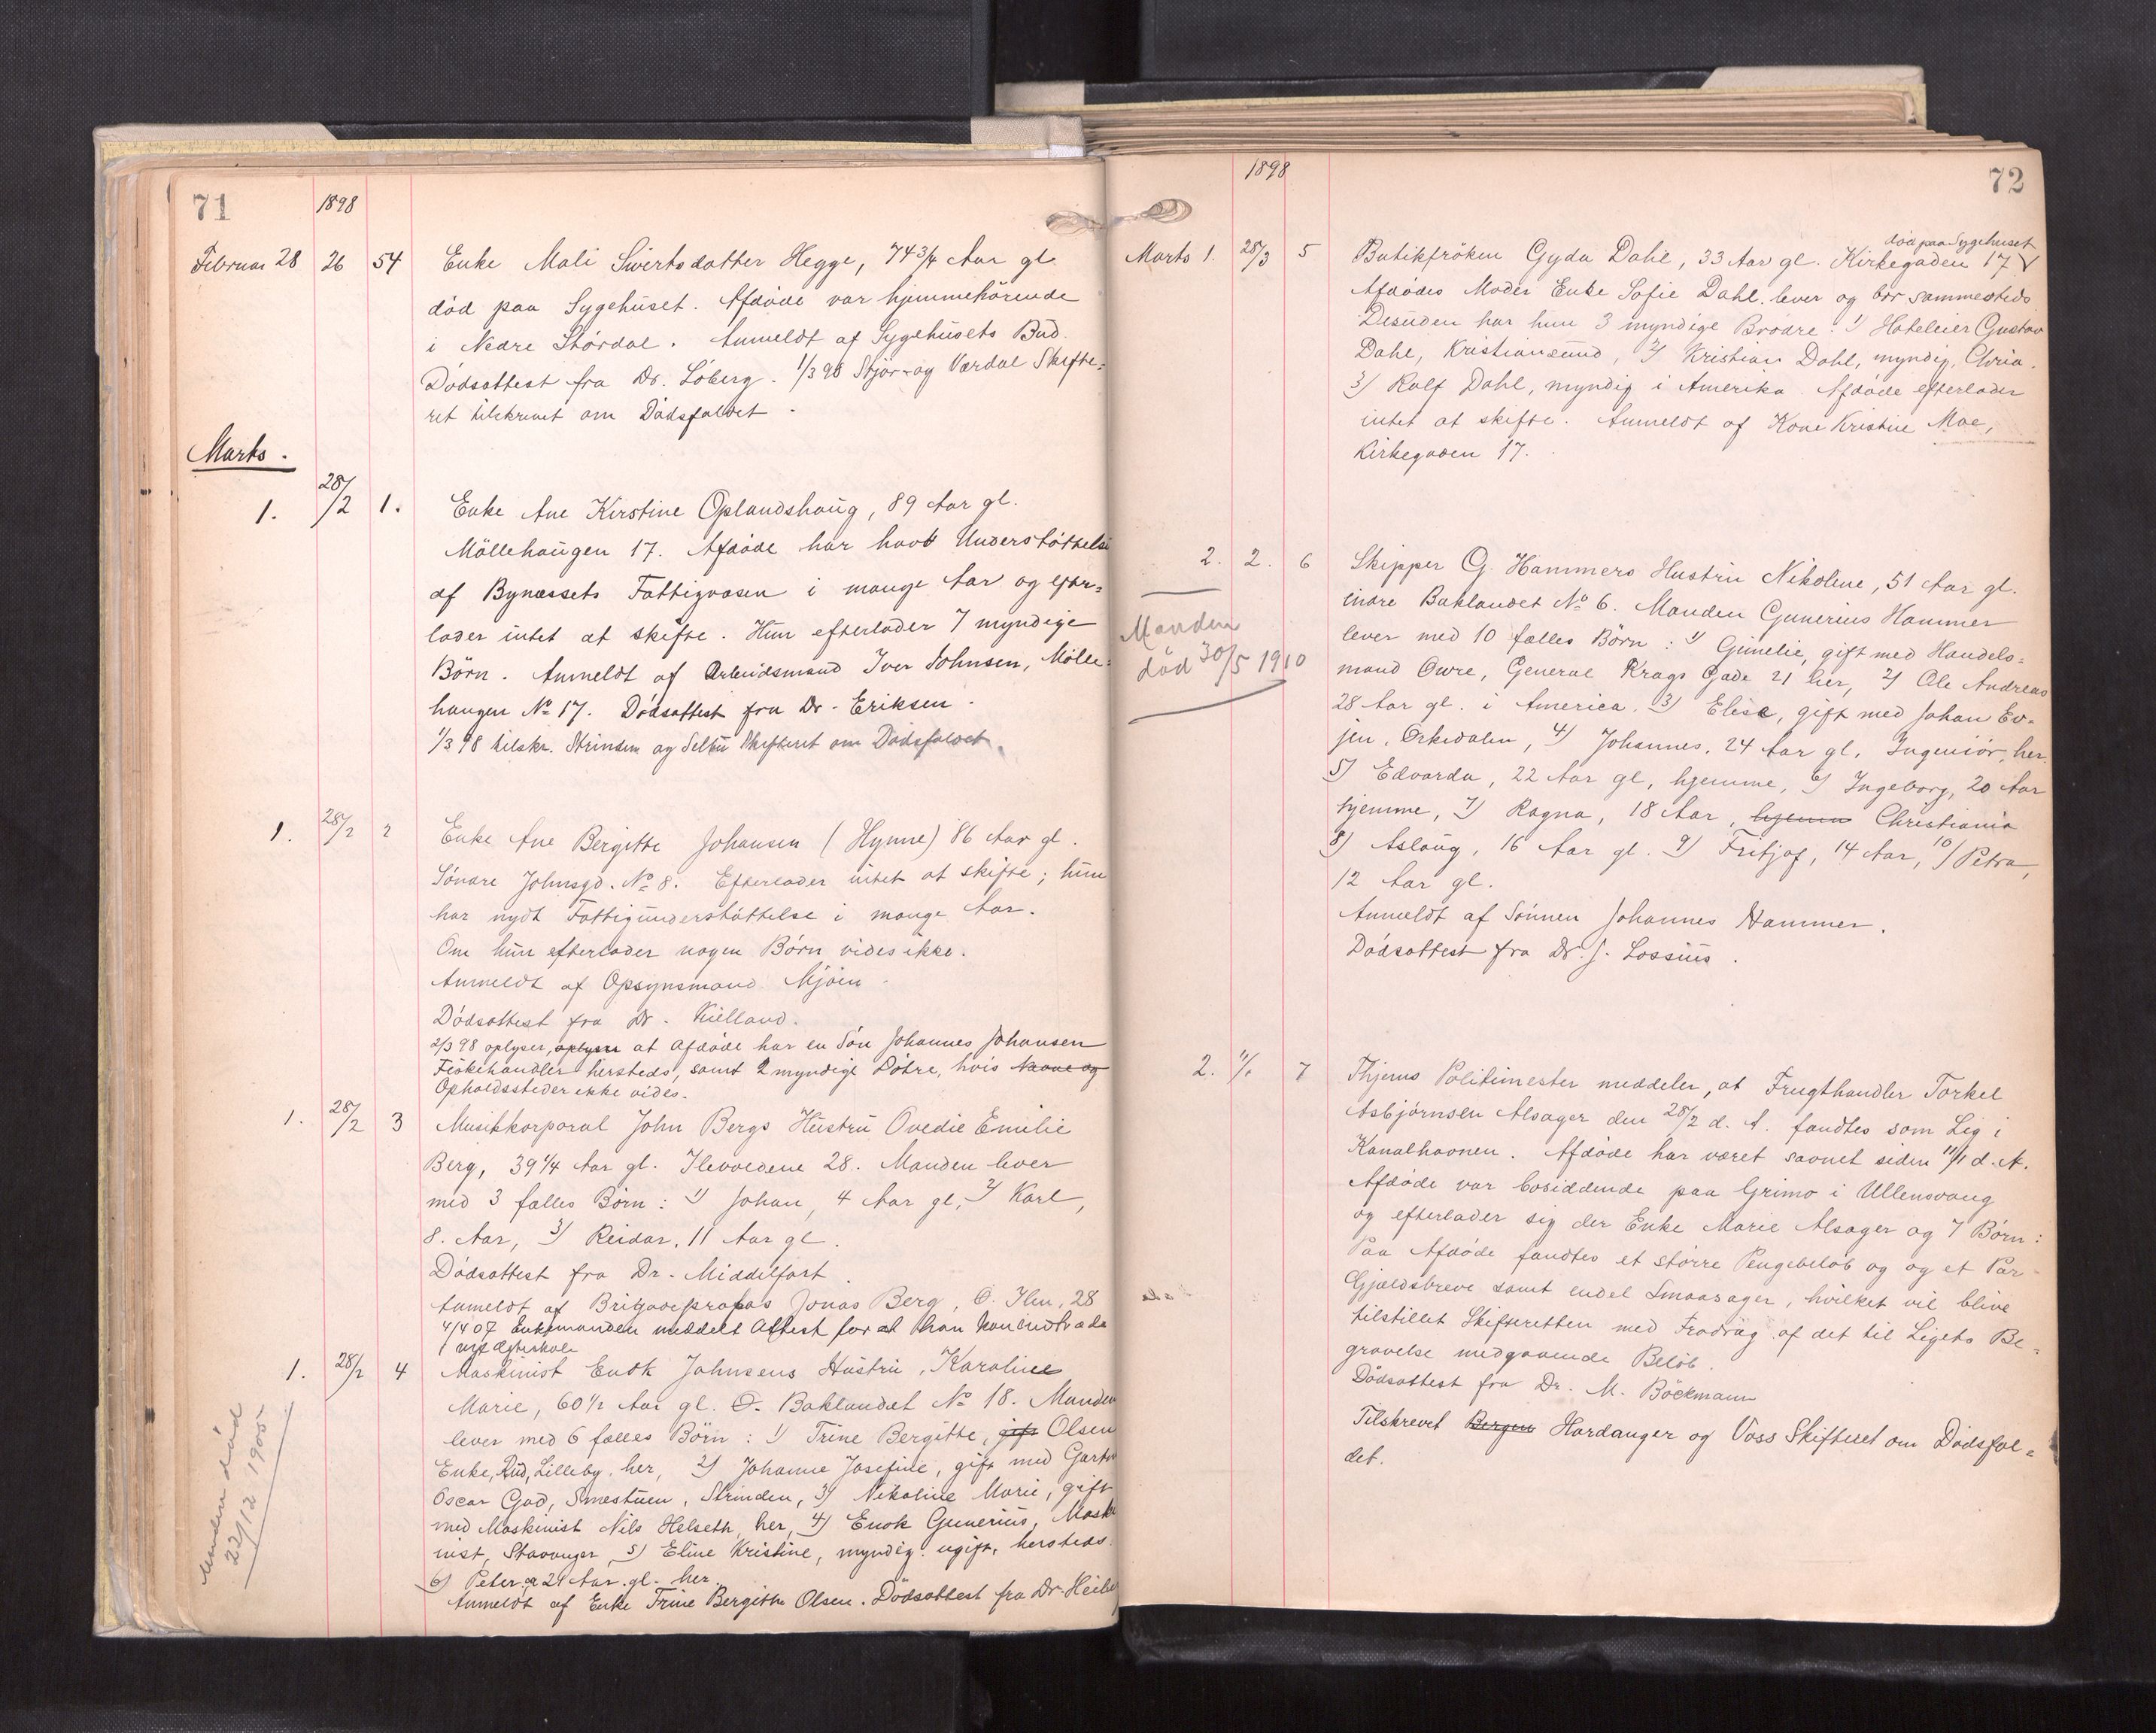 71
1898
Februar 28 26 54 Enke Mali Siverts datter Hegge, 74 3/4 Aar gl.
död paa Sygehuset. Afdöde var hjemmehörende
i Nedre Stördal. Anmeldt af Sygehusets Bud.
Dödsattest fra Dr. Löberg. 1/3 98 Stjör- og Værdal Skifte=
ret tilskrevet om Dödsfaldet.
Marts.
1. 28/2 1. Enke Ane Kirstine Oplandshaug, 89 Aar gl.
Möllehaugen 17. Afdöde har havt Understöttelse
af Bynæssets Fattigvæsen i mange Aar og efter=
lader intet at skifte. Hun efterlader 7 myndige
Börn. Anmeldt af Arbeidsmand Iver Johnsen, Mölle=
haugen No 17. Dödsattest fra Dr. Eriksen.
1/3 98 tilskr. Strinden og Selbu Skifteret om Dödsfaldet.
1. 28/2 2 Enke Ane Bergitte Johansen (Hynne) 86 Aar gl.
Söndre Johnsgd. No 8. Efterlader intet at skifte; hun
har nydt Fattigunderstöttelse i mange Aar.
Om hun efterlader nogen Börn vides ikke.
Anmeldt af Opsynsmand Mjöen.
Dödsattest fra Dr. Kielland.
2/3 98 oplyser, oplyser at afdöde har en Sön Johannes Johansen
Fiskehandler hersteds, samt 2 myndige Dötre, hvis Navne og
Opholdssteder ikke vides.
1. 28/2 3 Musikkorporal John Bergs Hustru Ovedie Emilie
Berg, 39 1/4 Aar gl. Ilevoldene 28. Manden lever
med 3 fælles Börn: 1) Johan, 4 Aar gl, 2) Karl,
8. Aar, 3) Reidar, 11 Aar gl.
Dödsattest fra Dr. Middelfart.
Anmeldt af Jonas Berg, O. Ilen, 28
4/4 07 Enkemanden meddelt Attest for at han kan indtræde
i nyt Ægteskab
1. 28/2 4 Maskinist Enok Johnsens Hustru, Karoline
Marie, 60 1/2 Aar gl. O. Baklandet No 18. Manden
lever med 6 fælles Börn: 1) Trine Bergitte, gift Olsen
Enke, Rud, Lilleby, her, 2) Johanne Josefine, gift med Gartn
Oscar Gad, Smestuen, Strinden, 3) Nikoline Marie, gift
med Maskinist Nils Helseth, her, 4) Enok Gunerius, Maski
nist, Stavanger, 5) Eline Kristine, myndig. ugift, hersteds.
6) Peter, 21 Aar. gl. her.
Anmeldt af Enke Trine Bergitte Olsen. Dödsattest fra Dr. Heiberg
Manden död
22/12 1905
1898
72
Marts 1. 28/3 5 Butikfröken Gyda Dahl, 33 Aar gl. Kirkegaden 17
död paa Sygehuset
Afdödes Moder Enke Sofie Dahl. lever og bor sammesteds
Desuden har hun 3 myndige Brödre: 1) Hoteleier Gustav
Dahl, Kristiansund, 2) Kristian Dahl, myndig, Chria.
3) Ralf Dahl, myndig i Amerika. Afdöde efterlader
intet at skifte. Anmeldt af Kone Kristine Moe,
Kirkegaden 17.
2. 2. 6 Skipper G. Hammers Hustru Nikoline, 51 Aar gl.
indre Baklandet No 6. Manden Gunerius Hammer
lever med 10 fælles Börn: 1) Gunelie, gift med Handels=
mand Owre, General Krags Gade 21 her, 2) Ole Andreas
28 Aar gl. i America. 3) Elise, gift med Johan Ev=
jen, Orkedalen, 4) Johannes, 24 Aar gl, Ingeniör, her.
5) Edvarda, 22 Aar gl, hjemme, 6) Ingeborg, 20 Aar
hjemme, 7) Ragna, 18 Aar, hjemme Christiania
8) Aslaug, 16 Aar gl. 9) Fritjof, 14 Aar, 10) Petra,
12 Aar gl.
Anmeldt af Sönnen Johannes Hammer.
Dödsattest fra Dr. J. Lossius.
Manden
död 30/5 1910
2. 11/1 7 Thjems Politimester meddeler, at Frugthandler Torkel
Asbjörnsen Alsager den 28/2 d. A. fandtes som Lig i
Kanalhavnen. Afdöde har været savnet siden 11/1 d. A.
Afdöde var bosiddende paa Grimo i Ullensvang
og efterlader sig der Enke Marie Alsager og 7 Börn:
Paa Afdöde fandtes et större Pengebelöb og og et Par
Gjældsbreve samt endel Smaasager, hvilket vil blive
tilstillet Skifteretten med Fradrag af det til Ligets Be=
gravelse medgaaende Belöb.
Dödsattest fra Dr. M. Böckmann
Tilskrevet Bergen Hardanger og Voss Skifteret om Dödsfal=
det.